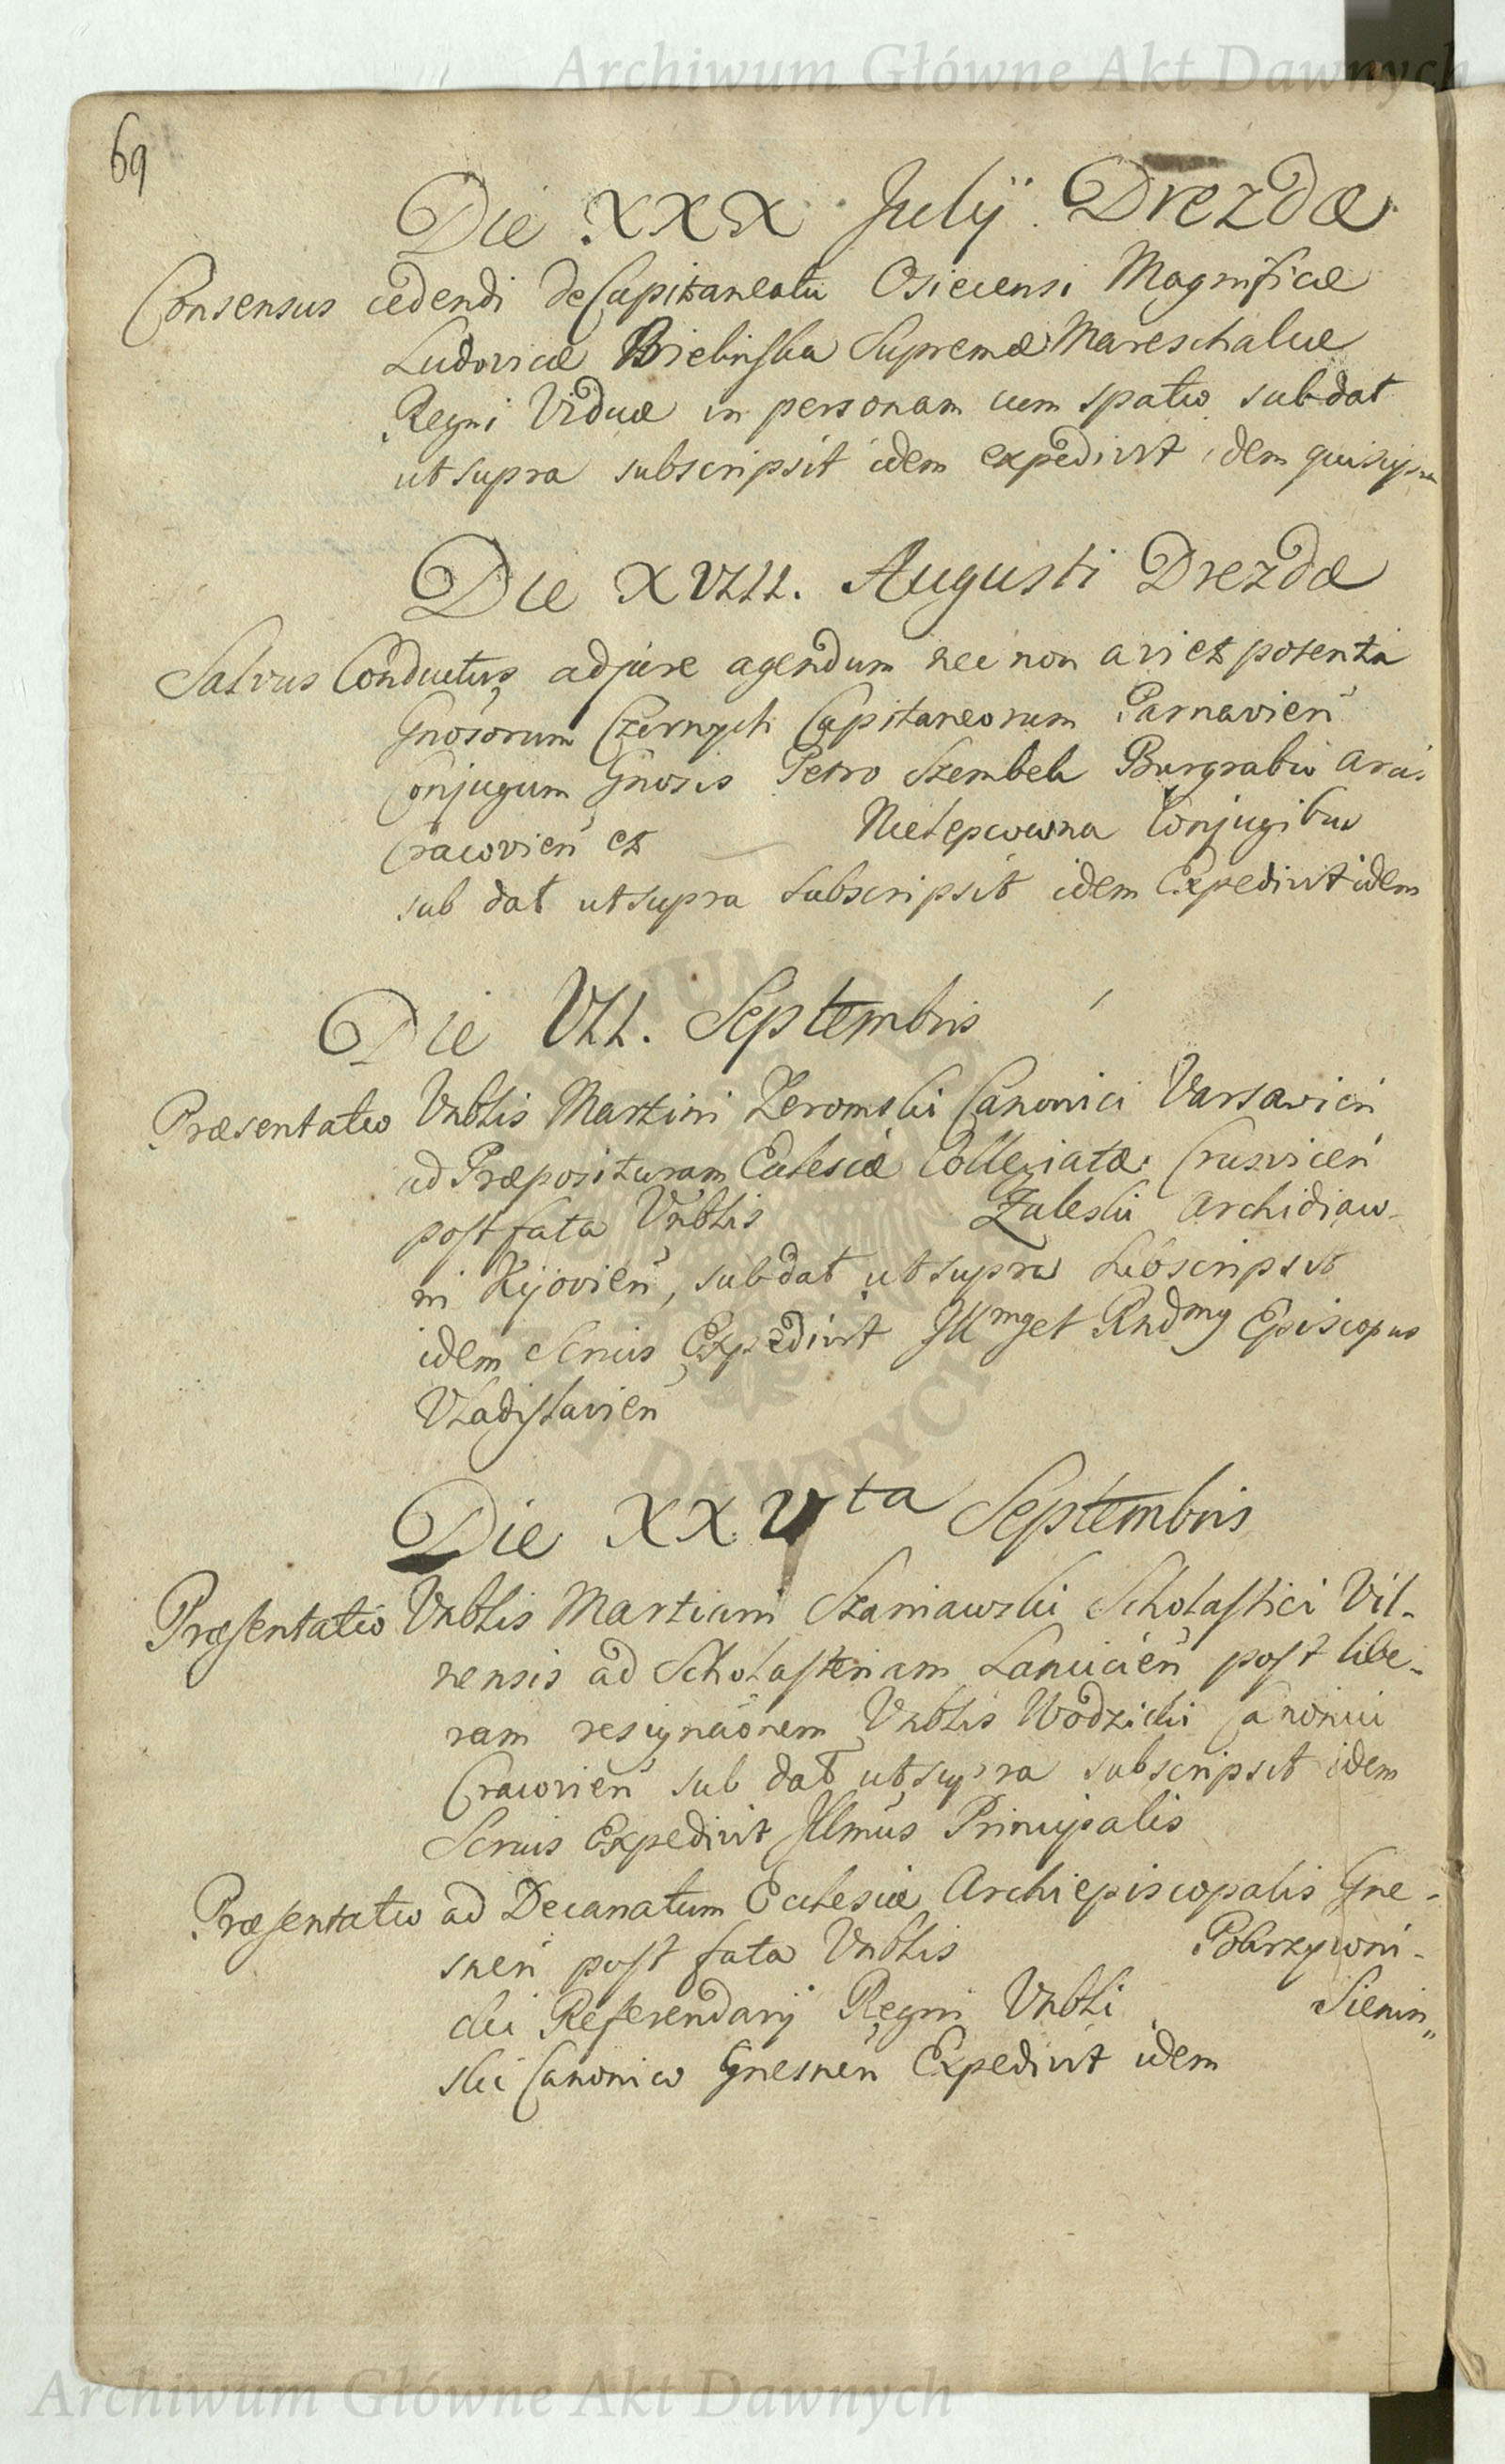 Archiwum Główne Akt Dawnych
69
Die XXX Julÿ Drezdæ
Consensus cedendi de Capitaneatu Osiecensi Magnificæ
Ludovicæ Bielinska Supremæ Mareschalcæ
Regni Viduæ in personam cum spatio sub dat
ut supra subscripsit idem expedivit idem qui supra
Die XVIII. Augusti Drezdæ
Salvus Conductus ad jure agendum nec non a vi et potentia
Gnosorum Czernych Capitaneorum Parnavień
Conjugum Gnosis Petro Szembek Burgrabio Arcis
Cracovień et Nielepcowna Conjugibus
sub dat ut supra Subscripsit idem Expedivit idem
Die VII. Septembris
Præsentatio Vnblis Martini Zeromski Canonici Varsavień
ad Præposituram Eclesiæ Collegiatæ Crusvicień
post fata Vnblis Zaleski Archidiaco-
ni Kijovień, sub dat ut supra subscripsit
idem Scrius Expedivit Jllmg et Rndmg Episcopus
Vladislavień
Die XXVta Septembris
Præsentatio Vnblis Martiani Szaniawski Scholastici Vil-
nensis ad Scholasteriam Lancicień post libe-
ram resignaōnem Vnblis Wodzicki Canonici
Cracovień sub dat ut supra subscripsit idem
Scrius Expedivit Jllmus Principalis
Præsentatio ad Decanatum Ecclesiæ Archiepiscopalis Gne-
sneń post fata Vnblis Pokrzywni-
cki Referendarij Regni Vnbli Sienin„
ski Canonico Gnesneń Expedivit idem
Archiwum Główne Akt Dawnych